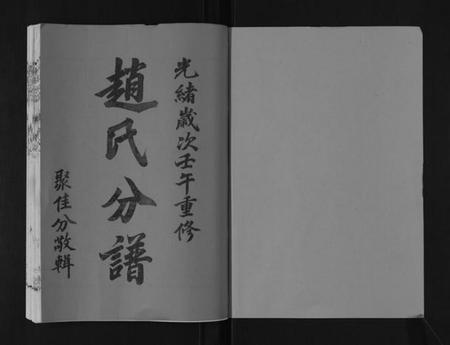 光緒歲次壬午重修
趙氏分譜
聚佳分敬輯